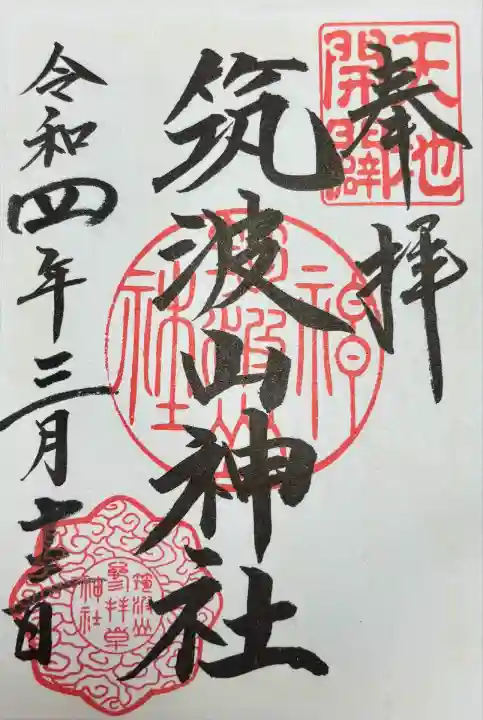 奉拝
天地開闢
筑波山神社
筑波山神社
令和四年三月十三日
筑波山
参拝章
神社